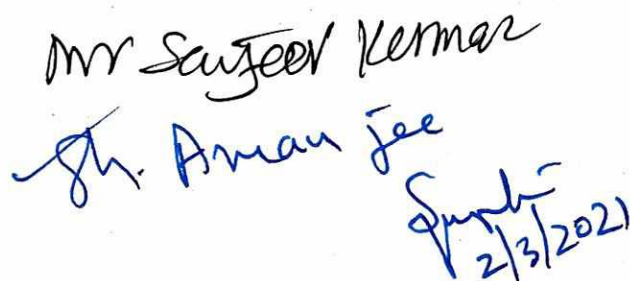 Mr Sanjeev Kumar
Sh. Aman jee
2/3/2021